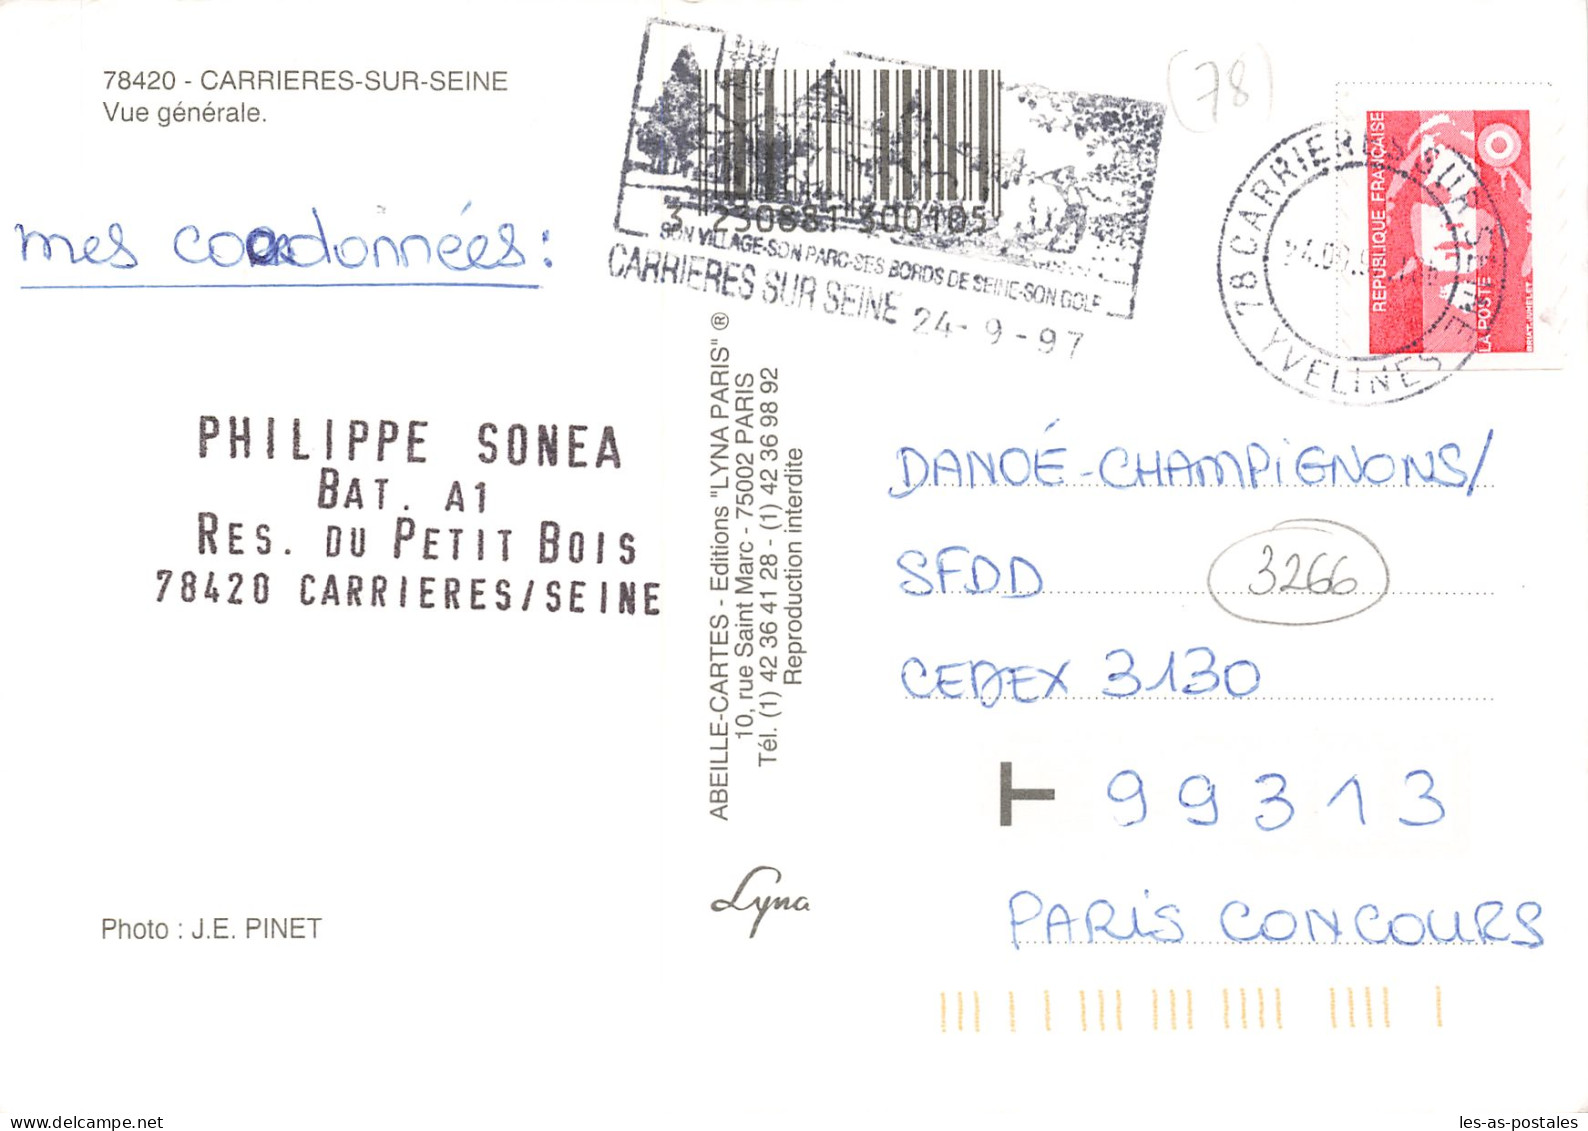 78420 - CARRIERES-SUR-SEINE
Vue générale.
mes coordonnées :
3 230881 300105
SON VILLAGE-SON PARC-SES BORDS DE SEINE-SON GOLF
CARRIERES SUR SEINE 24-9-97
(78)
78 CARRIERES SUR SEINE
YVELINES
REPUBLIQUE FRANÇAISE
LA POSTE
PHILIPPE SONEA
BAT. A1
RES. DU PETIT BOIS
78420 CARRIERES/SEINE
ABEILLE-CARTES - Editions "LYNA PARIS" ®
10, rue Saint Marc - 75002 PARIS
Tél. (1) 42 36 41 28 - (1) 42 36 98 92
Reproduction interdite
DANOÉ-CHAMPIGNONS/
SFDD
3266
CEDEX 3130
T 99313
PARIS CONCOURS
Photo : J.E. PINET
Lyna
les-as-postales